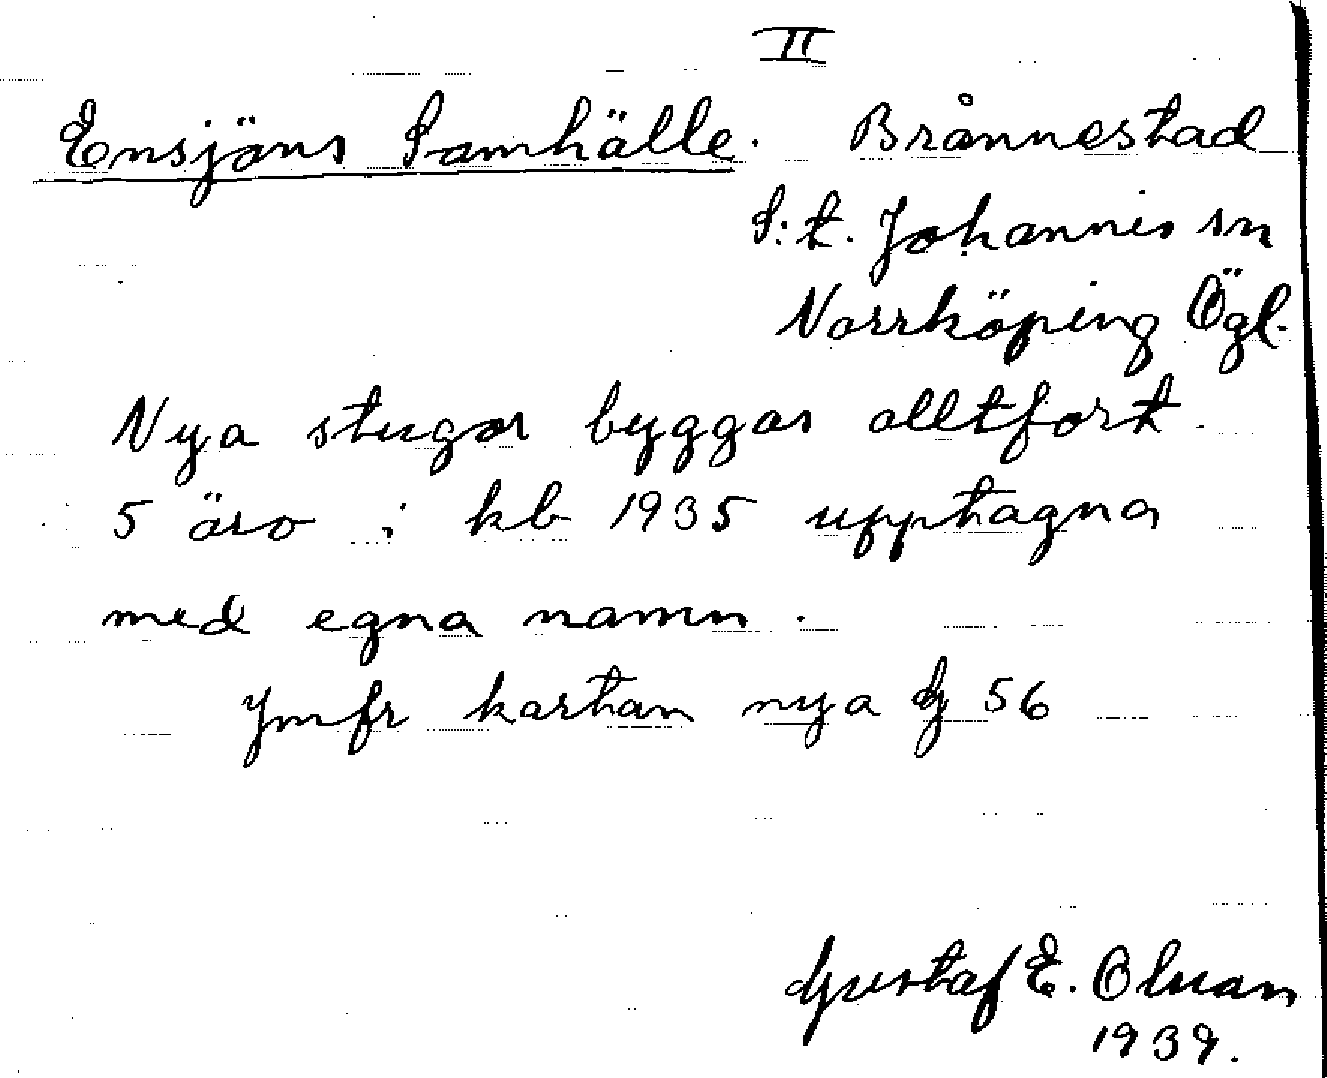 II
Ensjöns Samhälle. Brånnestad
S:t. Johannis sn
Norrköping Ögl.
Nya stugor byggas alltfort.
5 äro i kb 1935 upptagna
med egna namn.
Jmfr kartan nya 56
Gustaf E. Olson
1939.